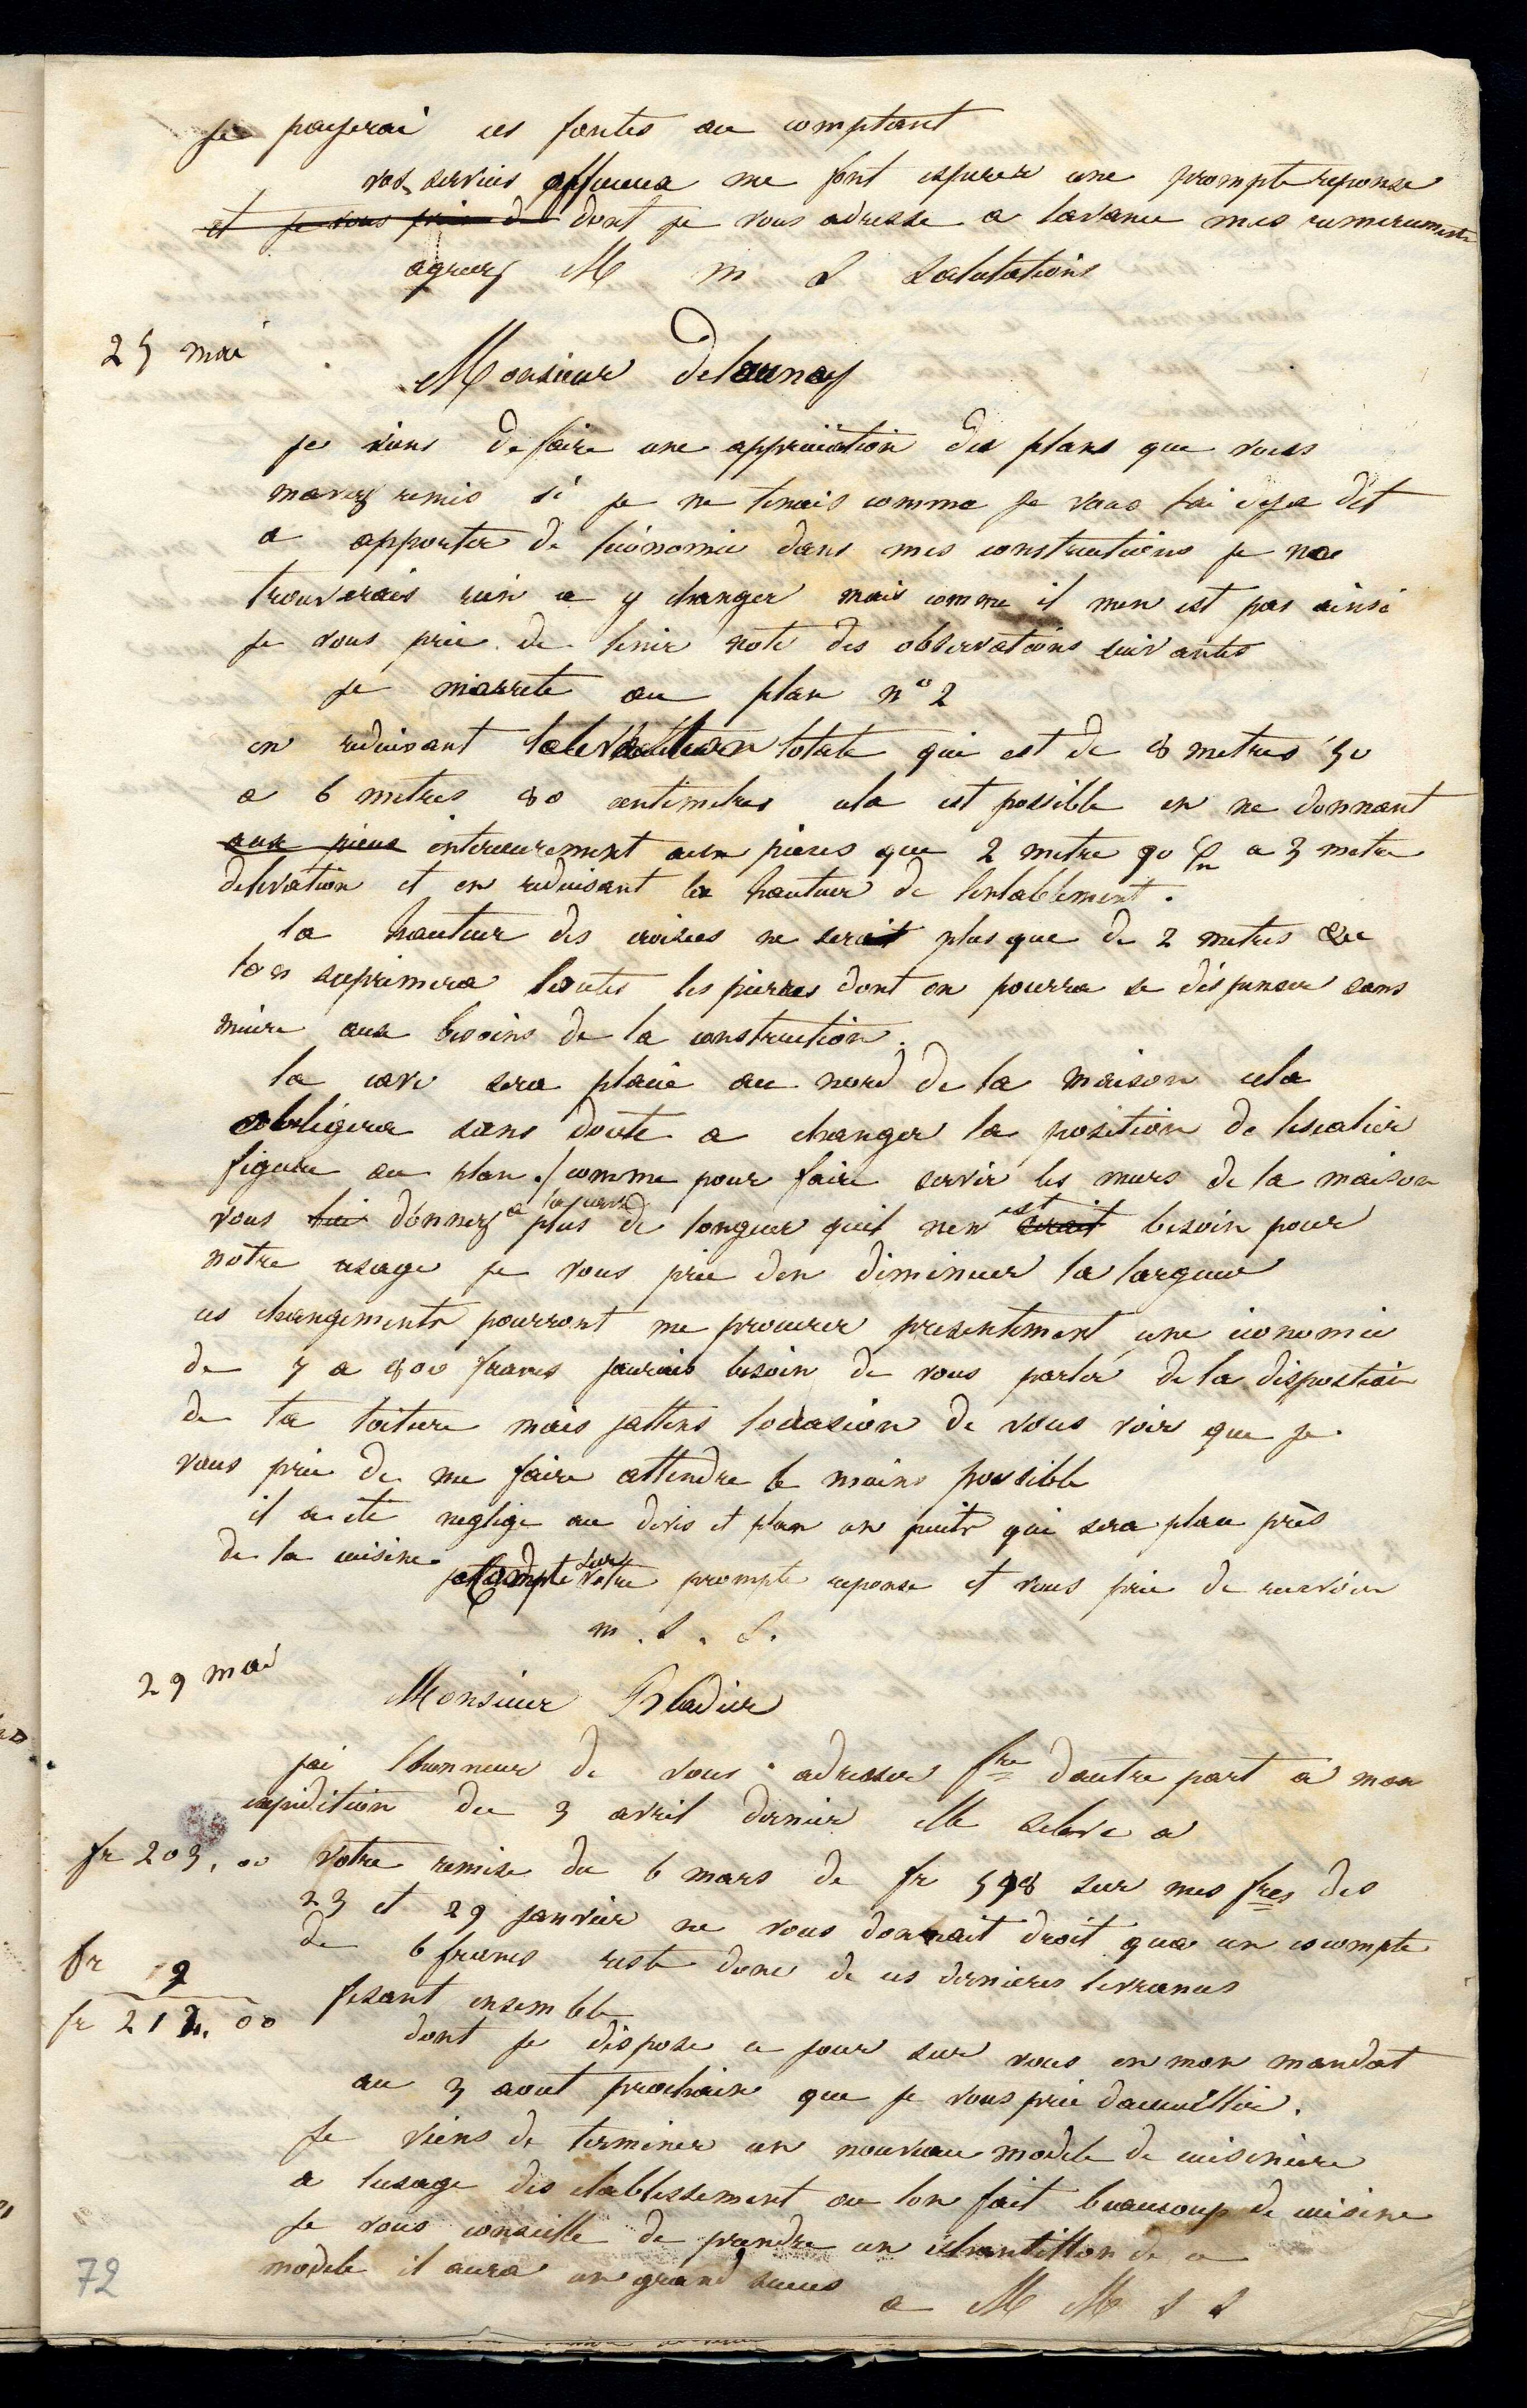 je payerai ces fontes au comptant
vos services affectueux me font esperer une prompte reponse
et je vous prie de dont je vous adresse a lavance mes remerciements
agreez M m S Salutations
25 mai
Monsieur Delaunay
je viens de faire une appréciation des plans que vous
mavez remis si je ne tenais comme je vous lai deja dit
a apporter de léconomie dans mes constructions je ne
trouverais rien a y changer mais comme il nen est pas ainsi
je vous prie de tenir note des observations suivantes
je marrete au plan n° 2
en reduisant lelevation totale qui est de 8 metres 50
a 6 metres 80 centimetres cela est possible en ne donnant
aux pieces interieurement aux pieces que 2 metre 90 c a 3 metre
delevation et en reduisant la hauteur de lentablement.
la hauteur des croisees ne serait plus que de 2 metres
lon suprimera toutes les pierres dont on pourra se dispenser sans
nuire aux besoins de la construction.
la cave sera placée au nord de la maison cela
obligera sans doute a changer la position de lescalier
figure au plan. / comme pour faire servir les murs de la maison
vous lui donnez a la cave plus de longueur quil nen serait est besoin pour
notre usage je vous prie den diminuer la largeur
ces changements pourront me procurer presentement une économie
de 7 a 800 francs jaurais besoin de vous parler de la dispostion
de la toiture mais jattens locasion de vous voir que je
vous prie de me faire attendre le moins possible
il a été neglige au devis et plan un puits qui sera place près
de la cuisine
je compte sur votre prompte reponse et vous prie de recevoir
m. S. S.
29 mai
Monsieur Pladier
jai lhonneur de vous adresser fre dautre part a mon
expédition du 3 avril dernier elle seleve a
fr 203,00 Votre remise du 6 mars de fr 598 sur mes fres des
23 et 29 janvier ne vous donnait droit qua un escompte
de 6 francs reste donc de ces dernieres livraisons
fr 9
fr 212.00 fesant ensemble
dont je dispose ce jour sur vous en mon mandat
au 3 aout prochain que je vous prie daccueillir.
je viens de terminer un nouveau modele de cuisiniere
a lusage des etablissement ou lon fait beaucoup de cuisine
je vous conseille de prendre un échantillon de ce
modele il aura un grand succes
a M M S S
72